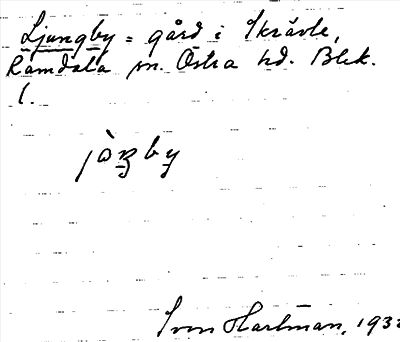 Ljungby = gård i Skrävle,
Ramdala sn. Östra hd. Blek.
l.
Sven Hartman, 193